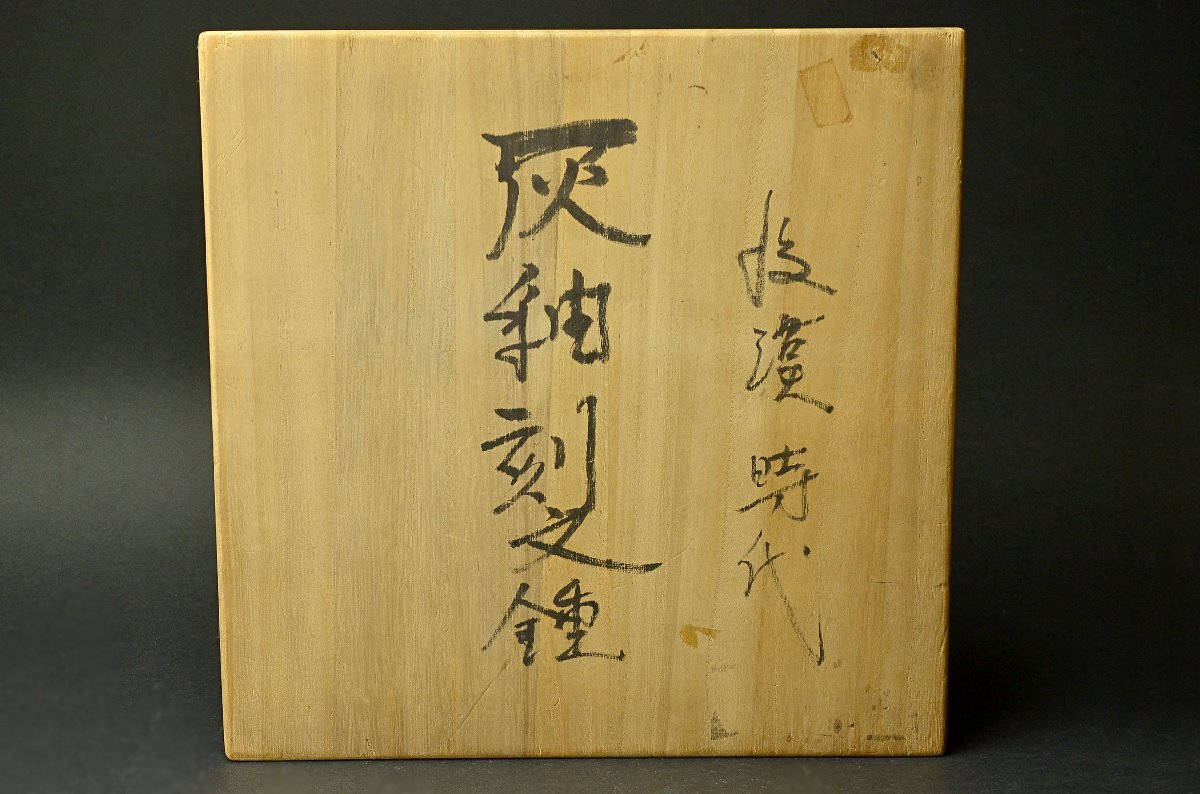 後漢時代
灰釉刻文鍾